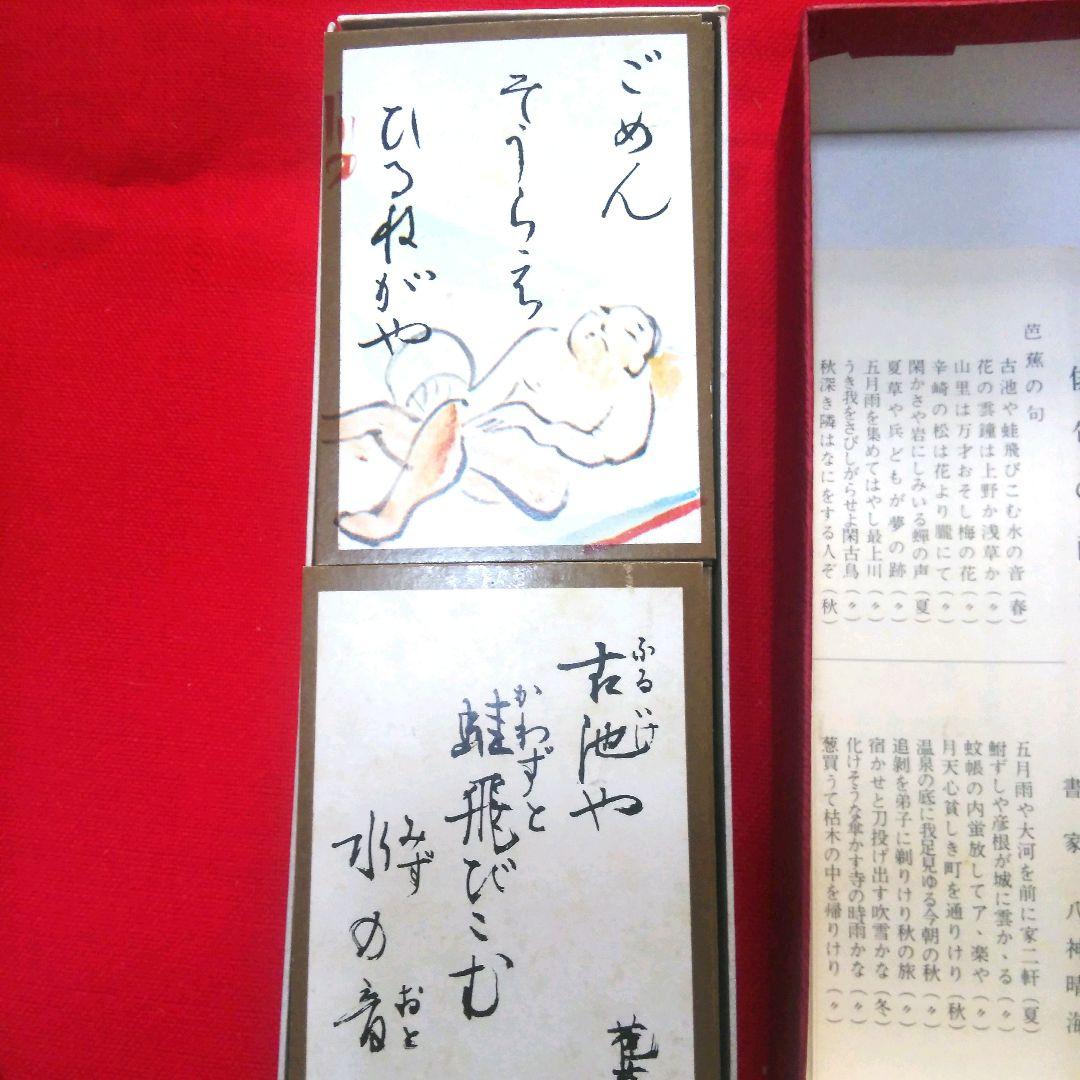 ごめん
そうらえ
ひるねがや
古池や
ふるいけ
蛙飛びこむ
かわずと
水の音
みず
おと
芭蕉の句
古池や蛙飛びこむ水の音(春)
花の雲鐘は上野か浅草か(〃)
山里は万才おそし梅の花(〃)
辛崎の松は花より朧にて(〃)
閑かさや岩にしみいる蟬の声(夏)
夏草や兵どもが夢の跡(〃)
五月雨を集めてはやし最上川(〃)
うき我をさびしがらせよ閑古鳥(〃)
秋深き隣はなにをする人ぞ(秋)
書家八神晴海
五月雨や大河を前に家二軒(夏)
鮒ずしや彦根が城に雲かゝる(〃)
蚊帳の内蛍放してア、楽や(〃)
月天心貧しき町を通りけり(秋)
温泉の底に我足見ゆる今朝の秋(〃)
追剝を弟子に剃りけり秋の旅(〃)
宿かせと刀投げ出す吹雪かな(冬)
化けそうな傘かす寺の時雨かな(〃)
葱買うて枯木の中を帰りけり(〃)